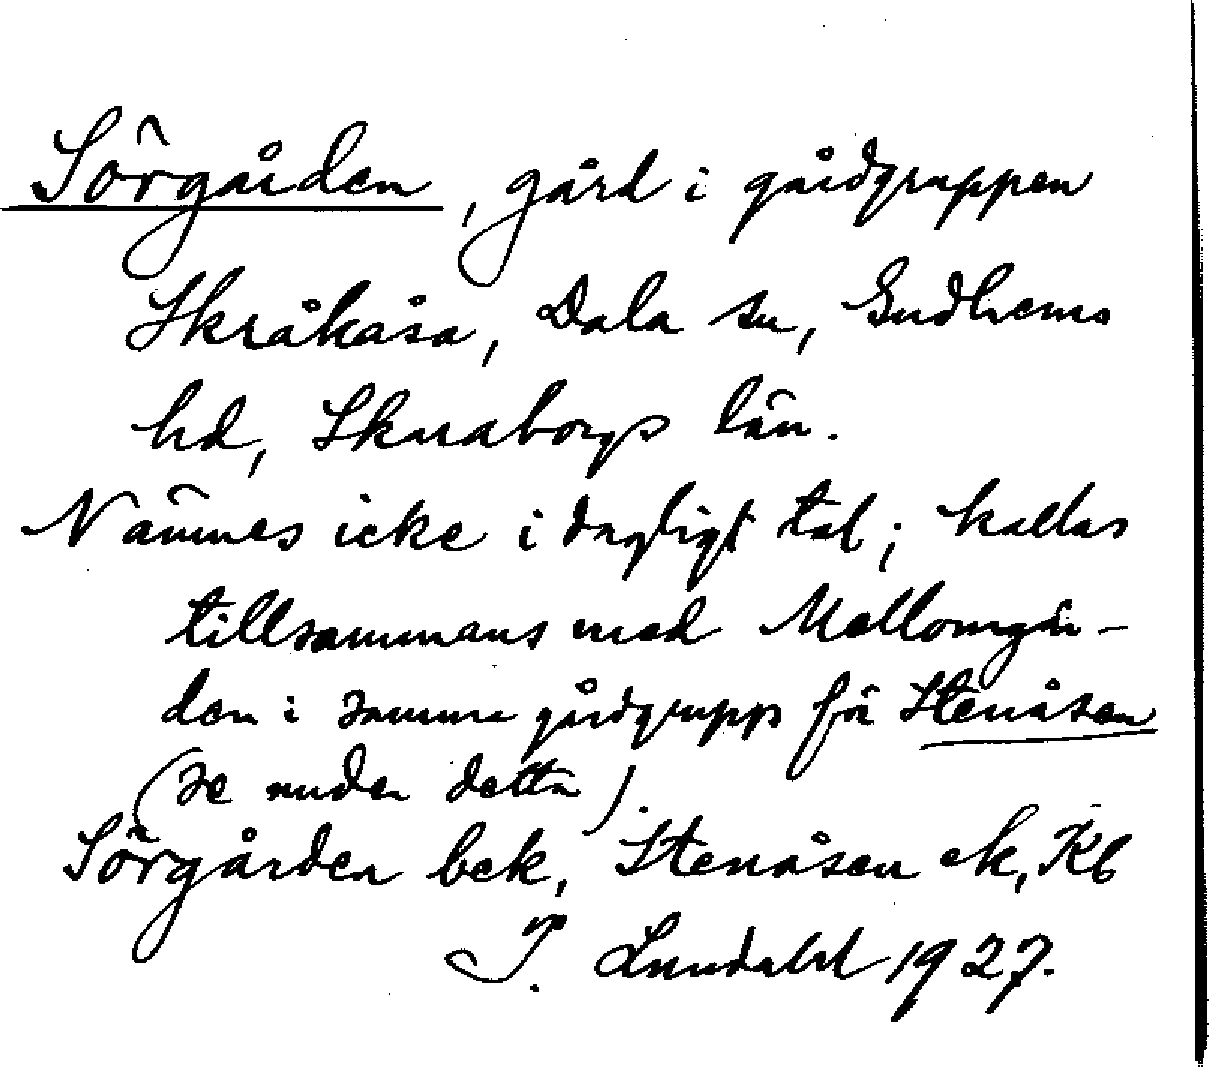 Sörgården, gård i gårdgruppen
Skråkåsa, Dala sn, Gudhems
hd, Skaraborgs län.
Nämnes icke i dagligt tal; kallas
tillsammans med Mellomgår-
den i samma gårdgrupp för Stenåsen
(se under detta).
Sörgården bek, Stenåsen ek, Kb
I. Lundahl 1927.